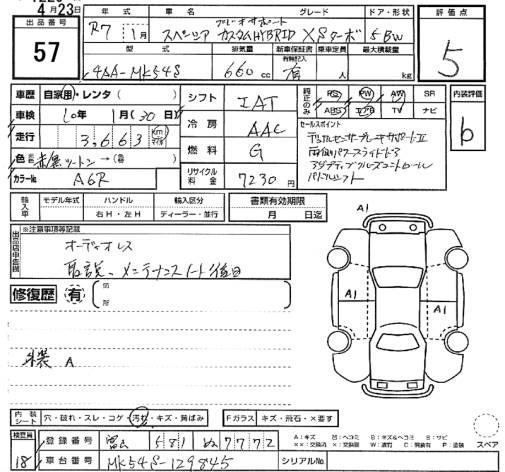 4月23日
出品番号
57
年式 車名 グレード ドア・形状 評価点
R7 1月 スペーシア カスタムHYBRID XSターボ 5BW
5
型式 排気量 新車保証書 乗車定員 最大積載量
4AA-MK54S 660cc 有 人 kg
車歴 自家用・レンタ( )
車検 10年 1月(30日)
走行 3,663 km
色 赤黒ツートン→( )
カラーNo A6R
シフト IAT
冷房 AAC
燃料 G
リサイクル料金 7230円
純正のみ PS PW AW SR
ABS エアB TV ナビ
内装評価
b
セールスポイント
デュアルセンサーブレーキサポートII
両側パワースライドドア
アダプティブクルーズコントロール
パドルシフト
輸入車 モデル年式 ハンドル 輸入区分 書類有効期限
右H・左H ディーラー・並行 月 日迄
出品店申告欄
※注意事項等記載
オーディオレス
取説、メンテナンスノート後日
修復歴 有
外装 A
A1
A1
A1
内装シート 穴・破れ・スレ・コゲ・汚れ・キズ・黄ばみ Fガラス キズ・飛石・×要す
検査員
18
登録番号 富山 581 ぬ 7772
車台番号 MK54S-129845
シリアルNo
A:キズ U:ヘコミ B:キズ&ヘコミ S:サビ
××:交換済 ×:要交換 W:波打 C:腐食有 P:塗装
スペア